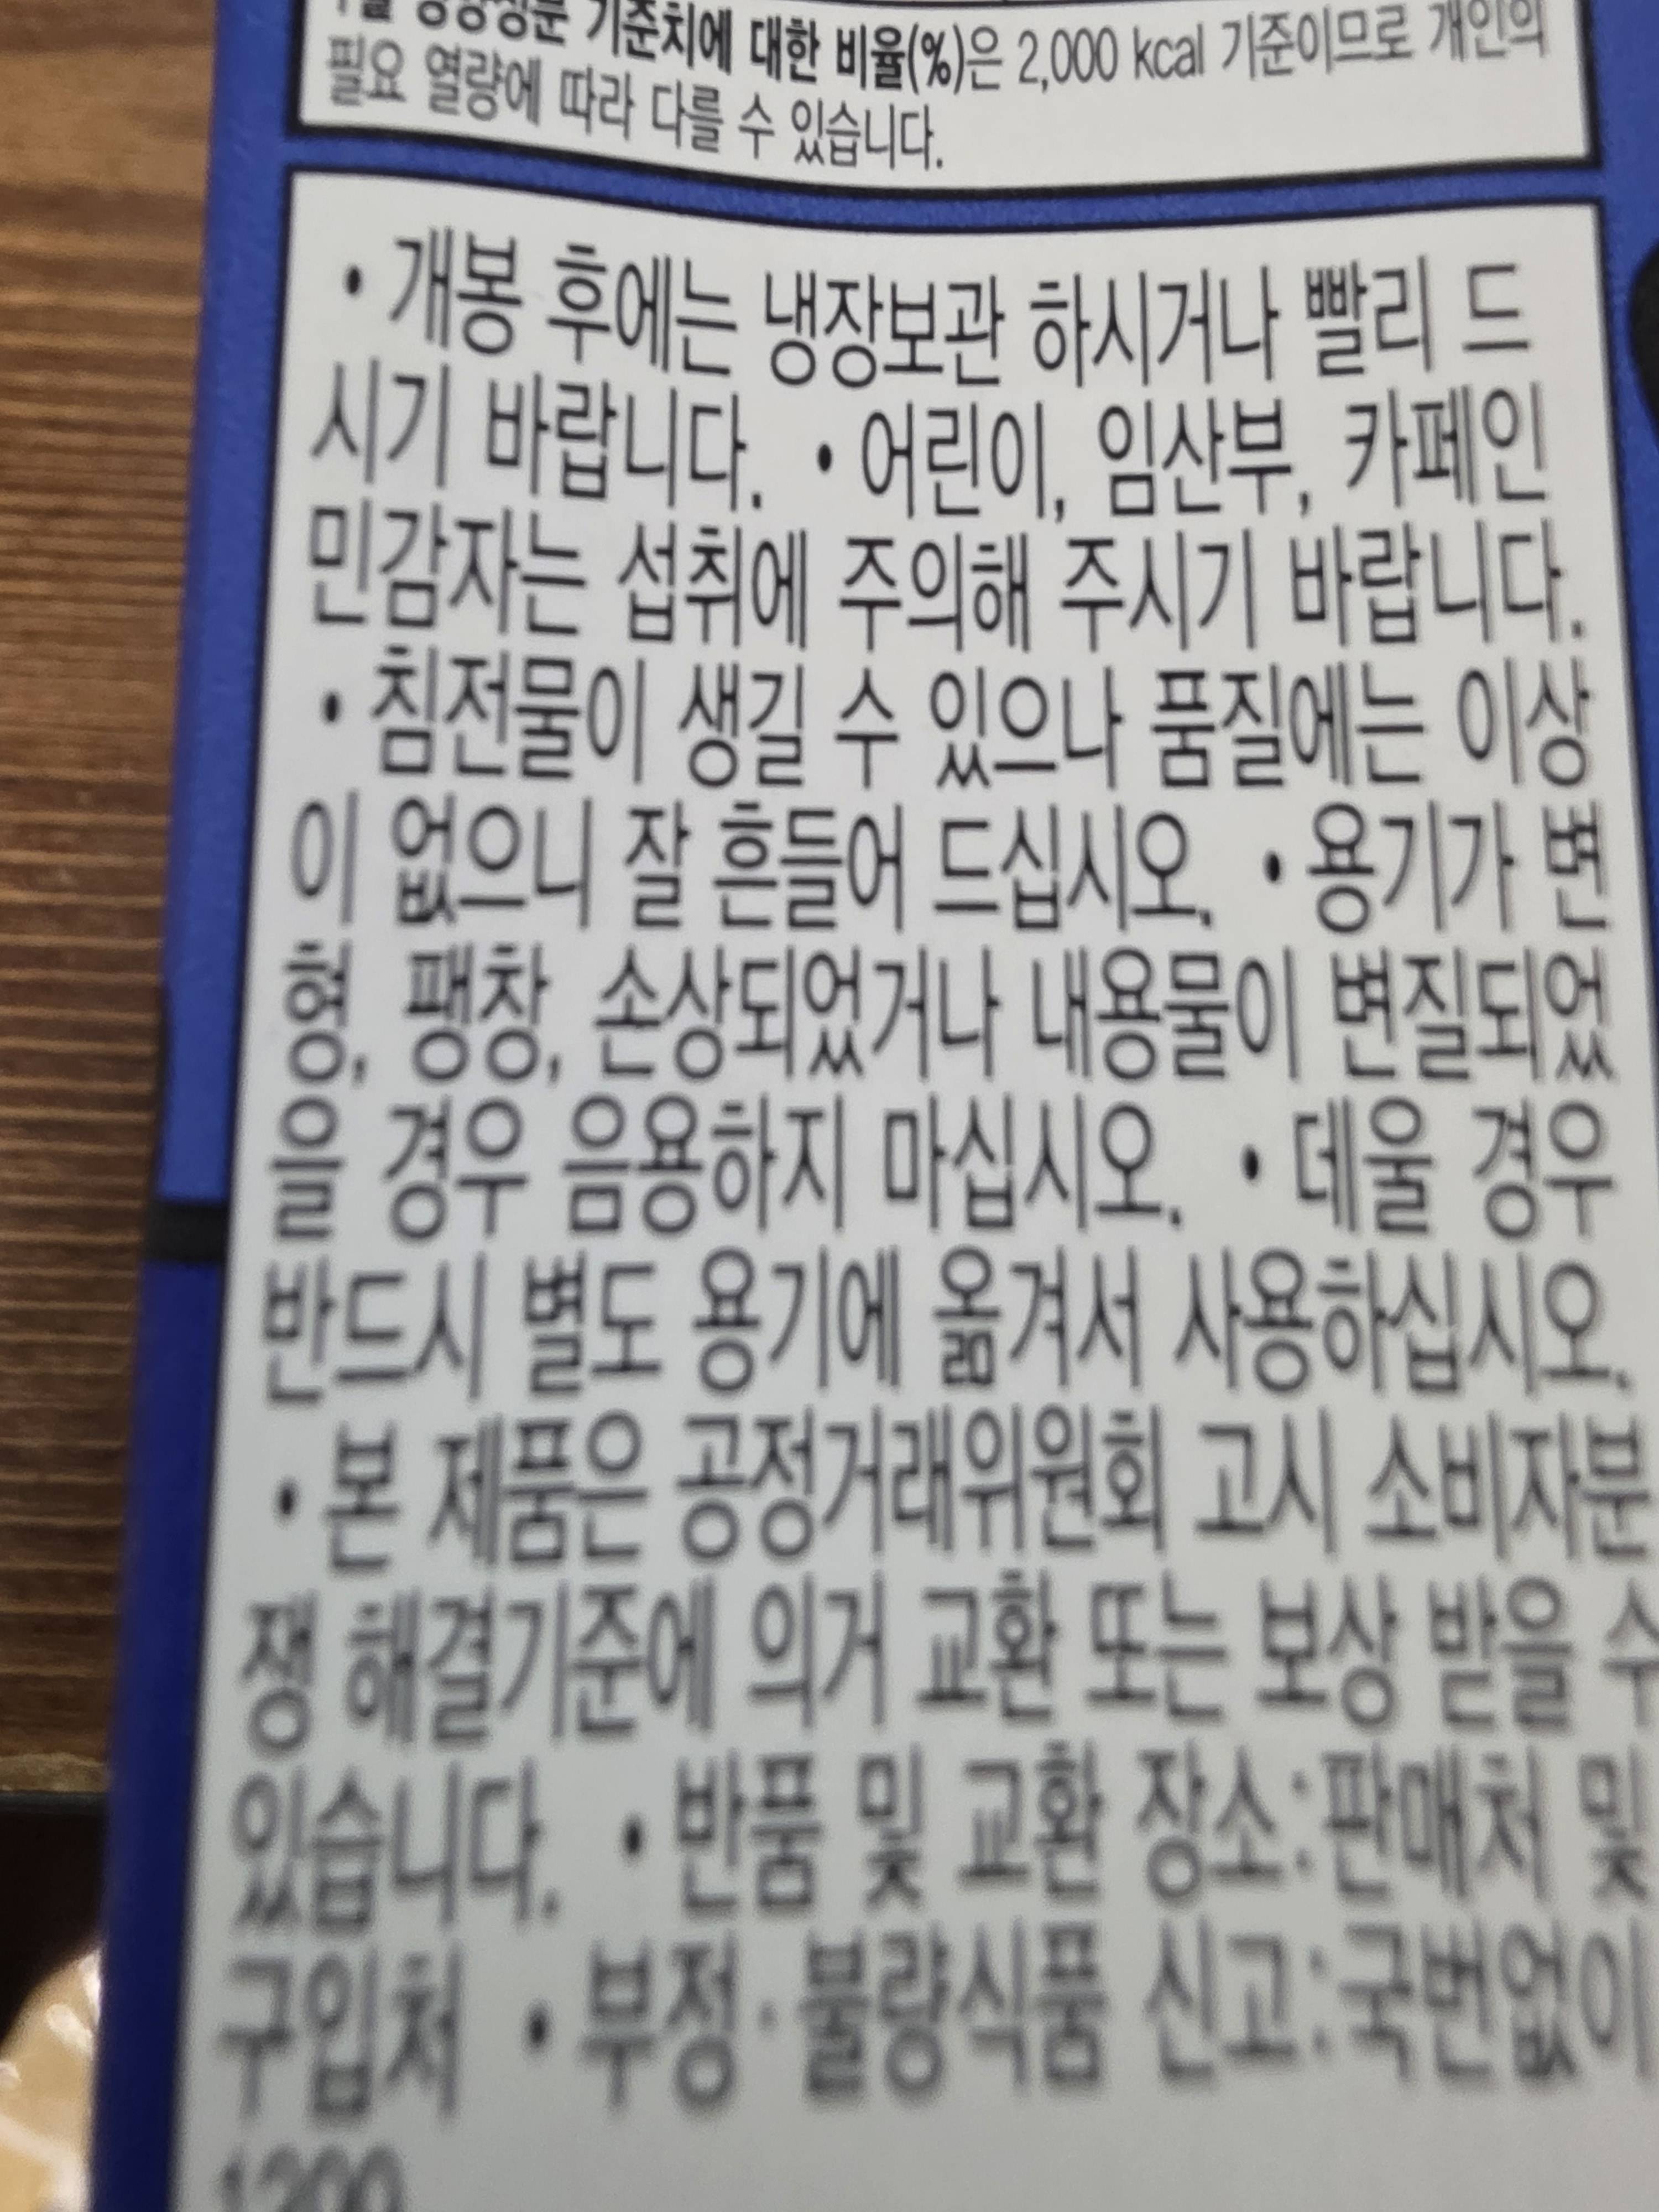 1일 영양성분 기준치에 대한 비율(%)은 2,000 kcal 기준이므로 개인의
필요 열량에 따라 다를 수 있습니다.
• 개봉 후에는 냉장보관 하시거나 빨리 드
시기 바랍니다. • 어린이, 임산부, 카페인
민감자는 섭취에 주의해 주시기 바랍니다.
• 침전물이 생길 수 있으나 품질에는 이상
이 없으니 잘 흔들어 드십시오. • 용기가 변
형, 팽창, 손상되었거나 내용물이 변질되었
을 경우 음용하지 마십시오. • 데울 경우
반드시 별도 용기에 옮겨서 사용하십시오.
• 본 제품은 공정거래위원회 고시 소비자분
쟁 해결기준에 의거 교환 또는 보상 받을 수
있습니다. • 반품 및 교환 장소:판매처 및
구입처 • 부정·불량식품 신고:국번없이